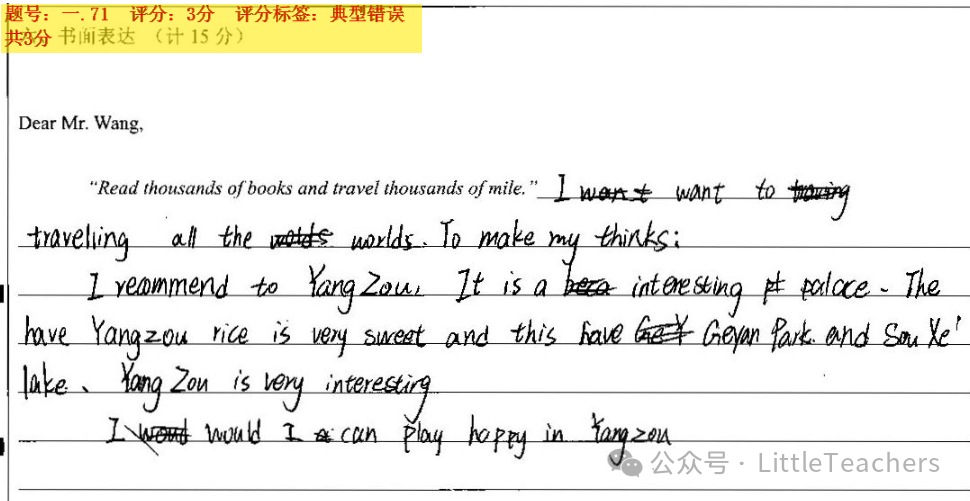 题号：一.71 评分：3分 评分标签：典型错误
共3分 书面表达 （计 15 分）
Dear Mr. Wang,
“Read thousands of books and travel thousands of mile.” I want to
travelling all the worlds. To make my thinks:
I recommend to YangZou. It is a interesting palace. The
have Yangzou rice is very sweet and this have Geyan Park and Sou Xe'
lake. Yang Zou is very interesting
I would I can play happy in Yangzou
公众号 · LittleTeachers